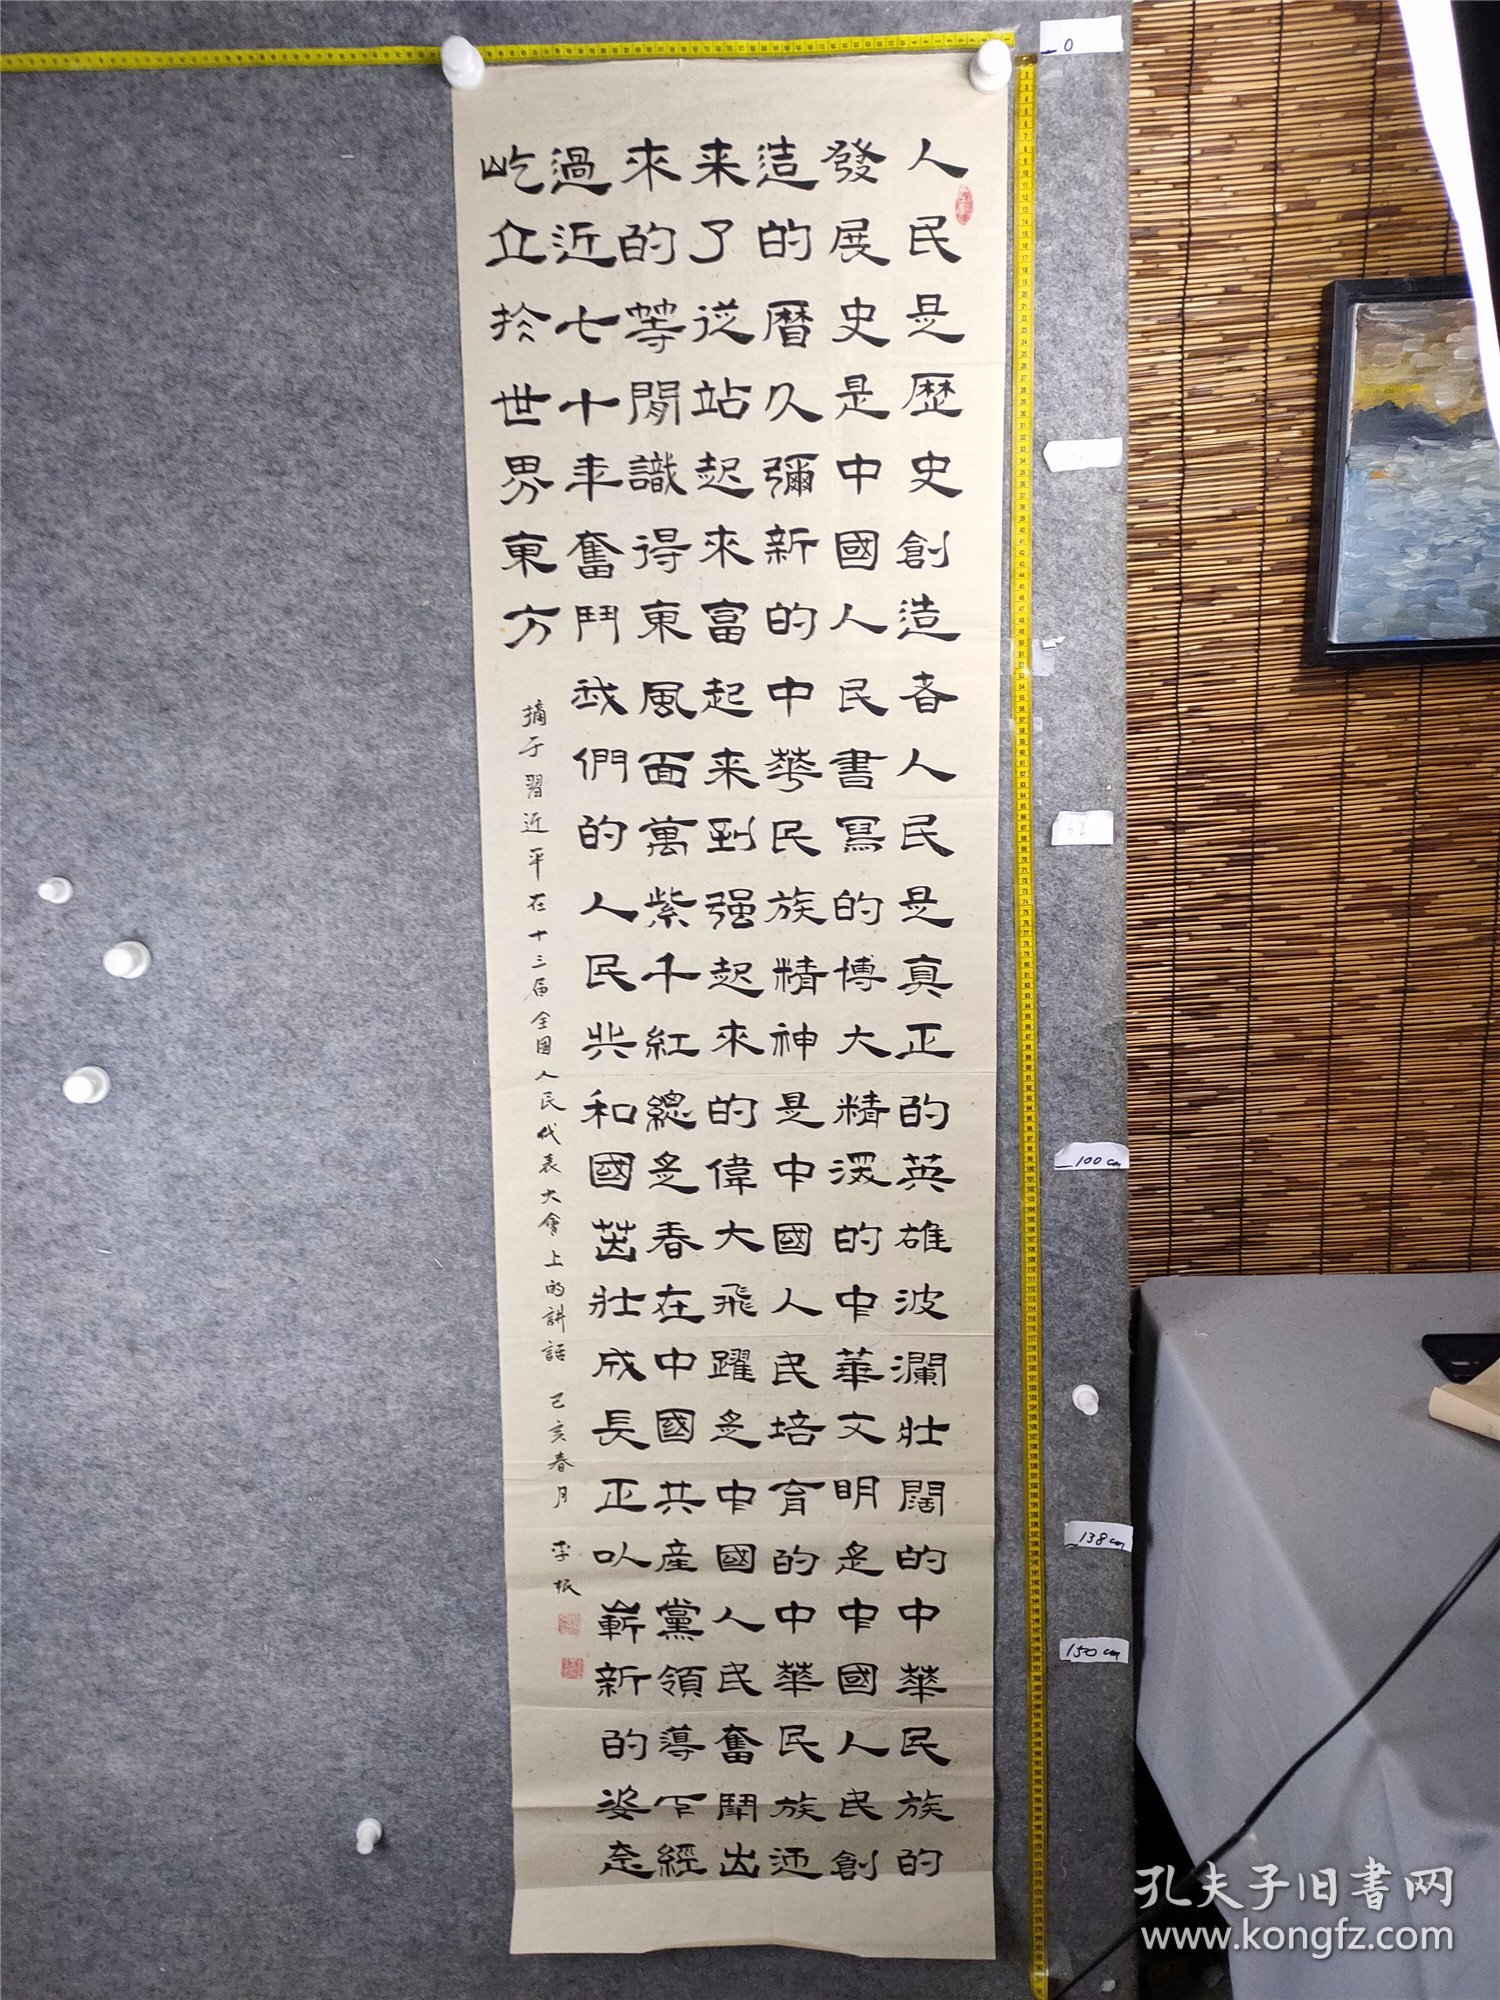 人民是歷史創造者人民是真正的英雄波瀾壯闊的中華民族的
發展史是中國人民書寫的博大精深的中華文明是中國人民創
造的曆久彌新的中華民族精神是中國人民培育的中華民族迎
来了從站起來富起来到强起來的偉大飛躍是中國人民奮鬥出
來的等閒識得東風面萬紫千紅總是春在中國共產黨領導下經
過近七十年奮鬥我們的人民共和國茁壯成長正以嶄新的姿态
屹立於世界東方
摘于習近平在十三届全國人民代表大會上的講話 己亥春月 李根
0
68
100cm
138cm
150cm
孔夫子旧書网
www.kongfz.com